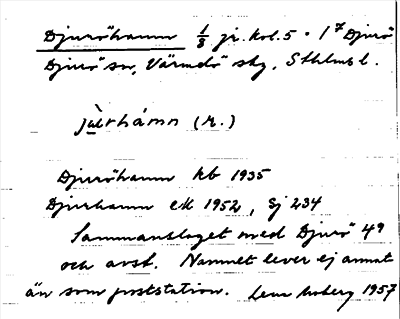 Djuröhamn 1/8 jr. kol. 5. 1⁷ Djurö
Djurö sn, Värmdö skg, Sthlms l.
jùrhámn (r.)
Djuröhamn kb 1935
Djurhamn ek 1952, Sj 234
Sammanslaget med Djurö 4⁹
och avst. Namnet lever ej annat
än som poststation. Lena Moberg 1957